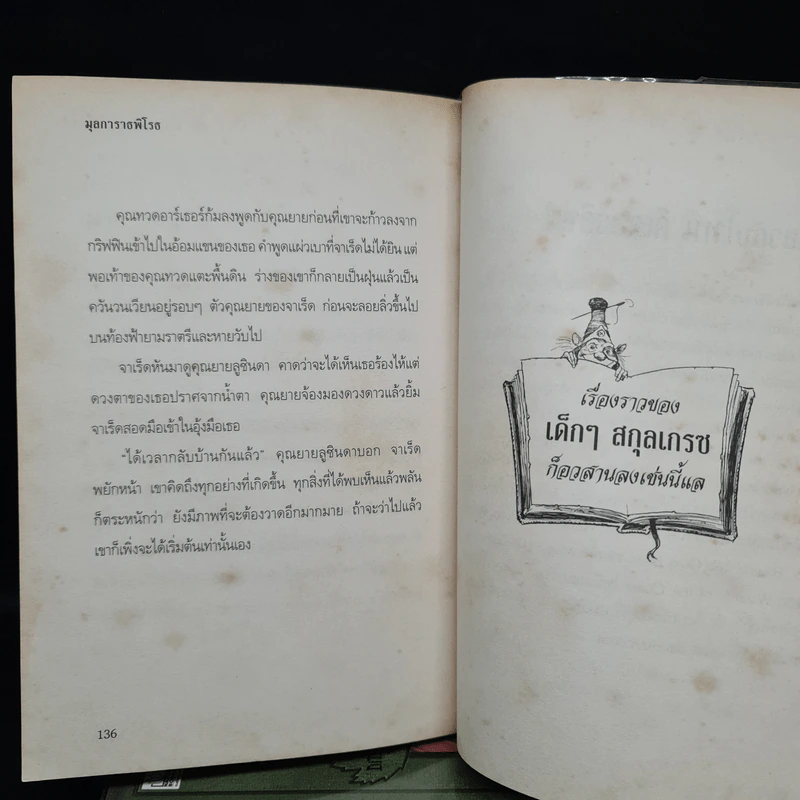 มุลการาธพิโรธ
คุณทวดอาร์เธอร์ก้มลงพูดกับคุณยายก่อนที่เขาจะก้าวลงจาก
กริฟฟินเข้าไปในอ้อมแขนของเธอ คำพูดแผ่วเบาที่จาเร็ดไม่ได้ยิน แต่
พอเท้าของคุณทวดแตะพื้นดิน ร่างของเขาก็กลายเป็นฝุ่นแล้วเป็น
ควันวนเวียนอยู่รอบๆ ตัวคุณยายของจาเร็ด ก่อนจะลอยลิ่วขึ้นไป
บนท้องฟ้ายามราตรีและหายวับไป
จาเร็ดหันมาดูคุณยายลูซินดา คาดว่าจะได้เห็นเธอร้องไห้แต่
ดวงตาของเธอปราศจากน้ำตา คุณยายจ้องมองดวงดาวแล้วยิ้ม
จาเร็ดสอดมือเข้าในอุ้งมือเธอ
"ได้เวลากลับบ้านกันแล้ว" คุณยายลูซินดาบอก จาเร็ด
พยักหน้า เขาคิดถึงทุกอย่างที่เกิดขึ้น ทุกสิ่งที่ได้พบเห็นแล้วพลัน
ก็ตระหนักว่า ยังมีภาพที่จะต้องวาดอีกมากมาย ถ้าจะว่าไปแล้ว
เขาก็เพิ่งจะได้เริ่มต้นเท่านั้นเอง
136
เรื่องราวของ
เด็กๆ สกุลเกรซ
ก็อวสานลงเช่นนี้แล